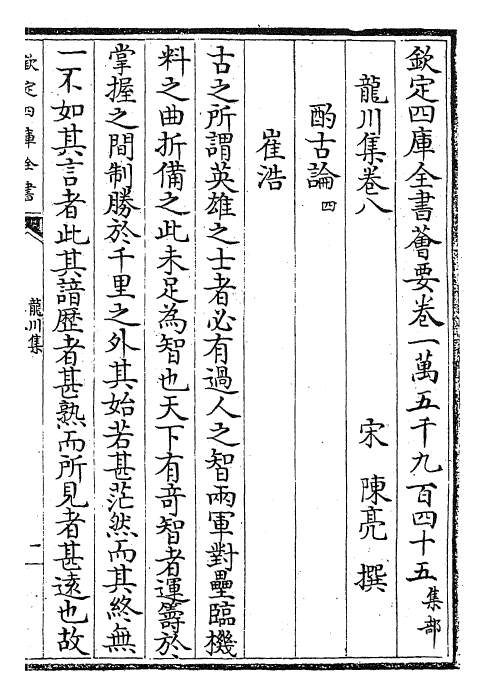 欽定四庫全書薈要卷一萬五千九百四十五集部
龍川集卷八
宋 陳亮 撰
酌古論四
崔浩
古之所謂英雄之士者必有過人之智兩軍對壘臨機
料之曲折備之此未足為智也天下有竒智者運籌於
掌握之間制勝於千里之外其始若甚茫然而其終無
一不如其言者此其諳歴者甚熟而所見者甚逺也故
欽定四庫全書
龍川集
一